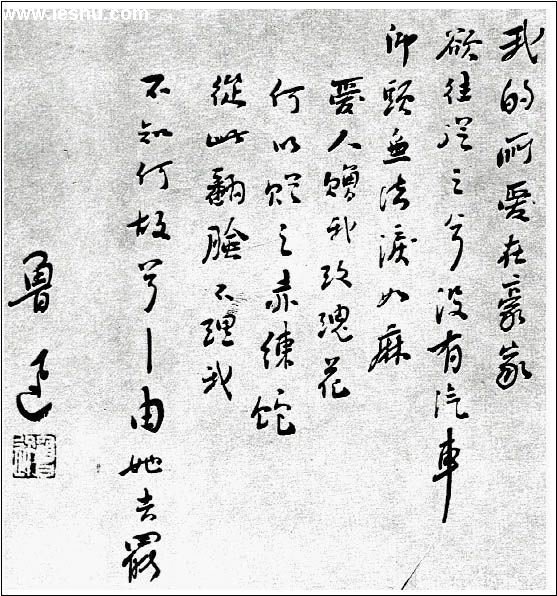 www.iesnu.com
我的所愛在豪家
欲往從之兮沒有汽車
仰頭無法淚如麻
愛人贈我玫瑰花
何以贈之赤練蛇
從此翻臉不理我
不知何故兮—由她去罷
魯迅